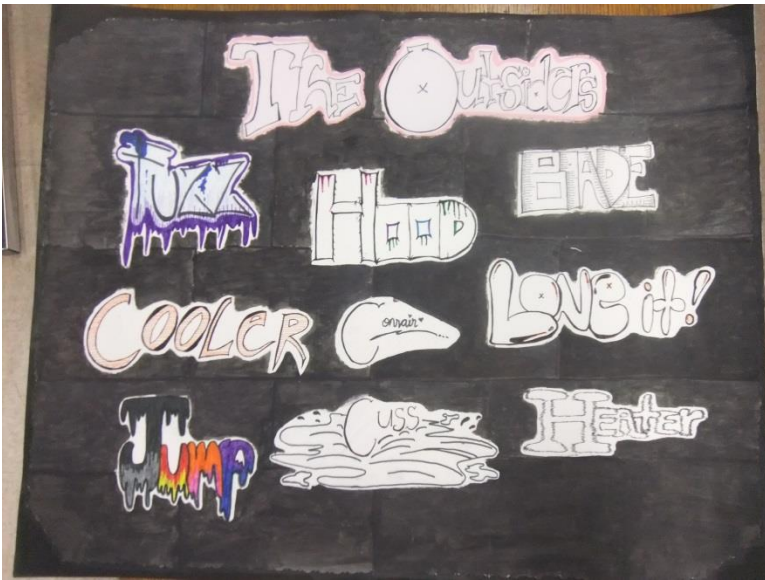 The Outsiders
Fuzz
Hood
BLADE
COOLER
Corvair
Love it!
Jump
Cuss
Heater